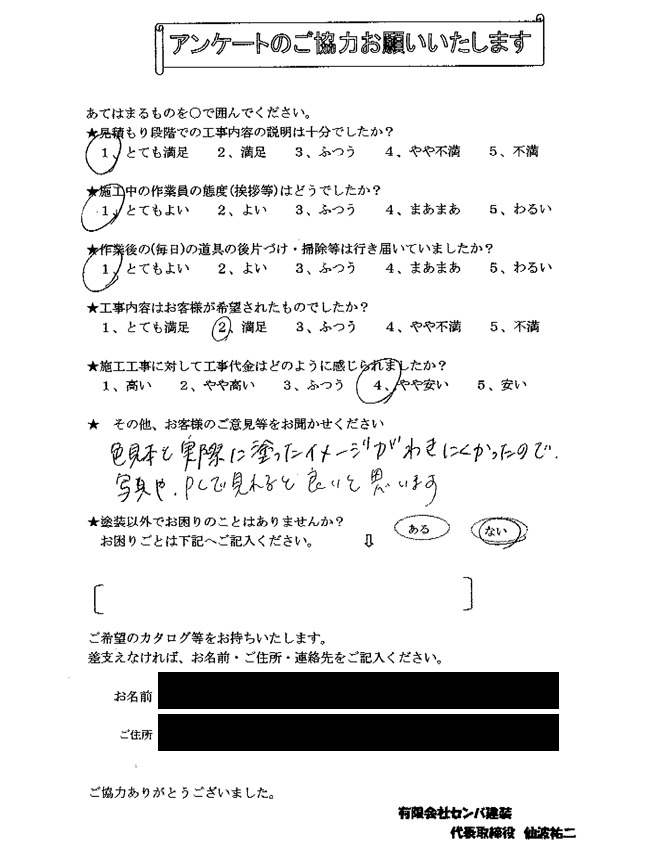 アンケートのご協力お願いいたします
あてはまるものを○で囲んでください。
★見積もり段階での工事内容の説明は十分でしたか？
1、とても満足 2、満足 3、ふつう 4、やや不満 5、不満
★施工中の作業員の態度(挨拶等)はどうでしたか？
1、とてもよい 2、よい 3、ふつう 4、まあまあ 5、わるい
★作業後の(毎日)の道具の後片づけ・掃除等は行き届いていましたか？
1、とてもよい 2、よい 3、ふつう 4、まあまあ 5、わるい
★工事内容はお客様が希望されたものでしたか？
1、とても満足 2、満足 3、ふつう 4、やや不満 5、不満
★施工工事に対して工事代金はどのように感じられましたか？
1、高い 2、やや高い 3、ふつう 4、やや安い 5、安い
★ その他、お客様のご意見等をお聞かせください
色見本と実際に塗ったイメージがわきにくかったので、
写真や、PCで見れると良いと思います
★塗装以外でお困りのことはありませんか？ ある ない
お困りごとは下記へご記入ください。 ⇩
ご希望のカタログ等をお持ちいたします。
差支えなければ、お名前・ご住所・連絡先をご記入ください。
お名前
ご住所
ご協力ありがとうございました。
有限会社センバ建装
代表取締役 仙波祐二